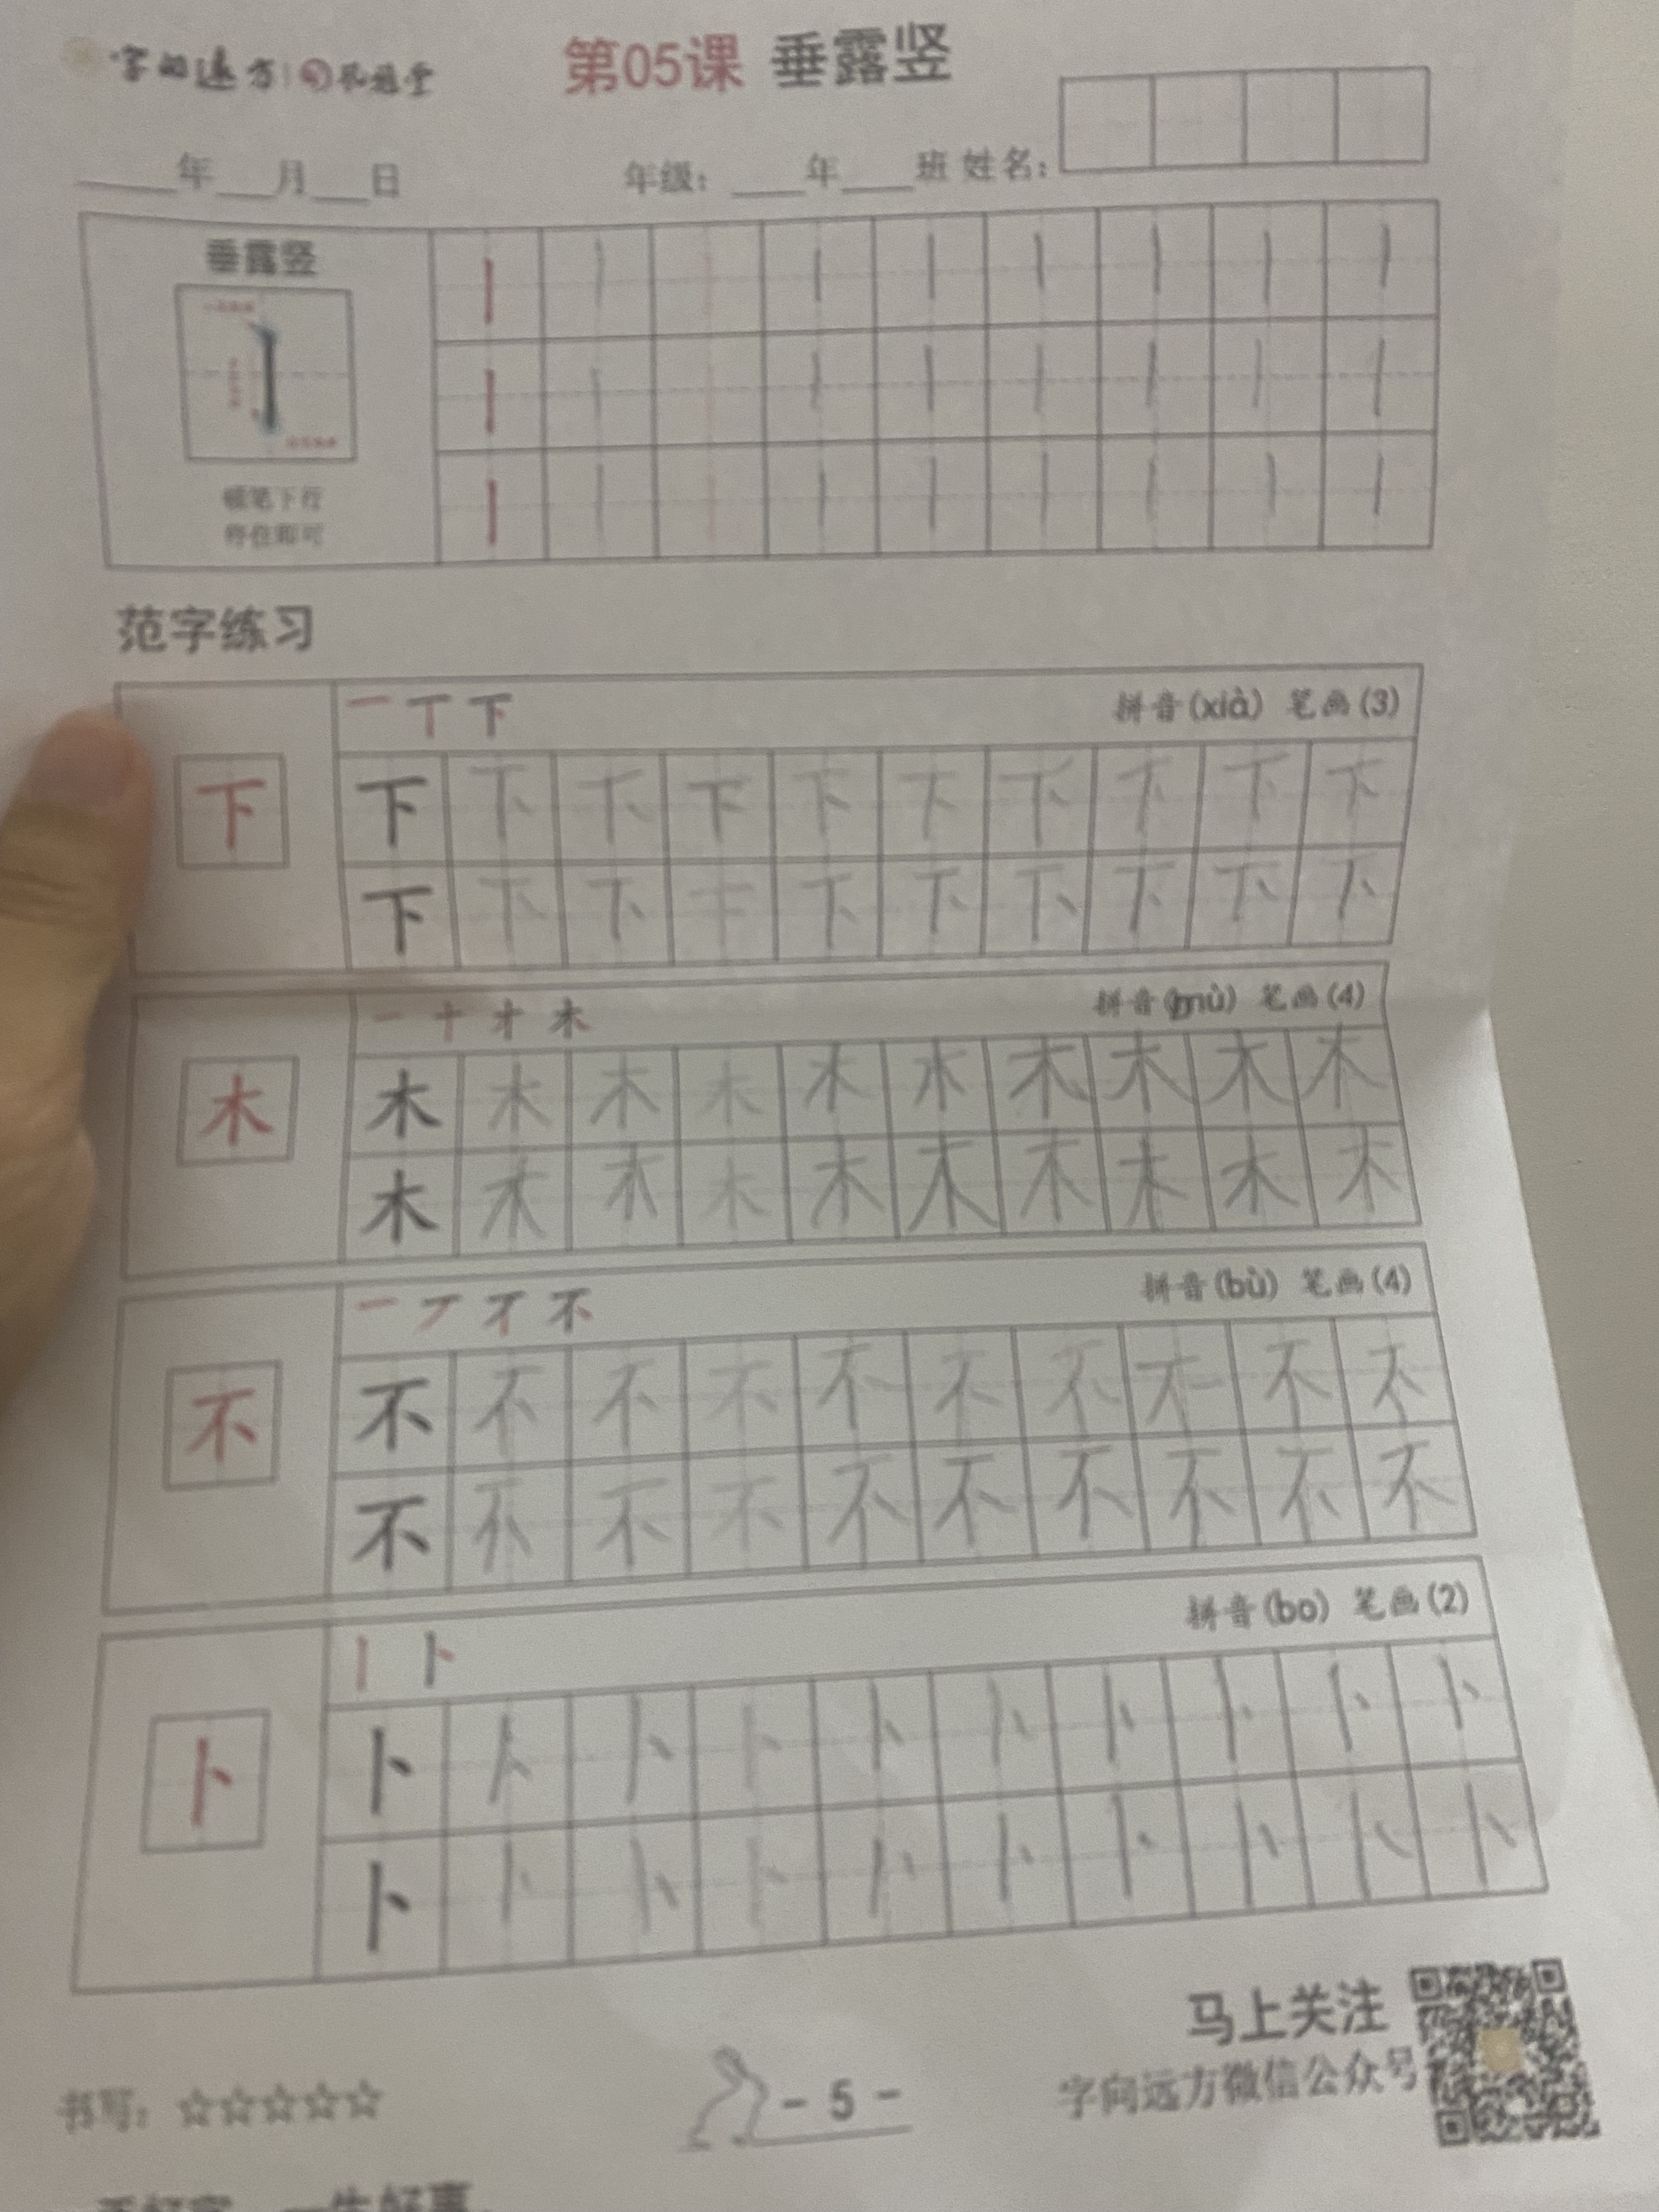 字向远方
第05课 垂露竖
年 月 日 年级： 年 班 姓名：
垂露竖
顿笔下行
停住即可
范字练习
一 丅 下 拼音(xià) 笔画(3)
下 下 下 下 下 下 下 下 下 下 下
下 下 下 下 下 下 下 下 下 下
一 十 才 木 拼音(mù) 笔画(4)
木 木 木 木 木 木 木 木 木 木 木
木 木 木 木 木 木 木 木 木 木
一 丆 不 拼音(bù) 笔画(4)
不 不 不 不 不 不 不 不 不 不 不
不 不 不 不 不 不 不 不 不 不
丨 卜 拼音(bo) 笔画(2)
卜 卜 卜 卜 卜 卜 卜 卜 卜 卜 卜
卜 卜 卜 卜 卜 卜 卜 卜 卜 卜
马上关注
字向远方微信公众号
书写：☆☆☆☆☆
- 5 -